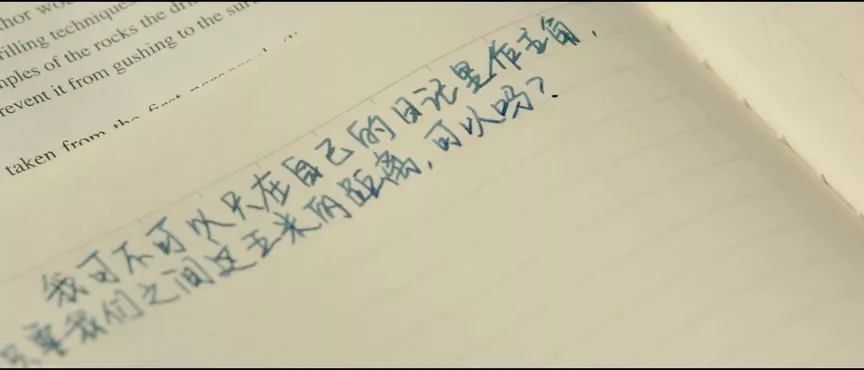 hor wo
rilling techniques
mples of the rocks the dri
revent it from gushing to the sur
taken from the first
我可不可以只在自己的日记里作主角,
只要我们之间这五米的距离,可以吗?